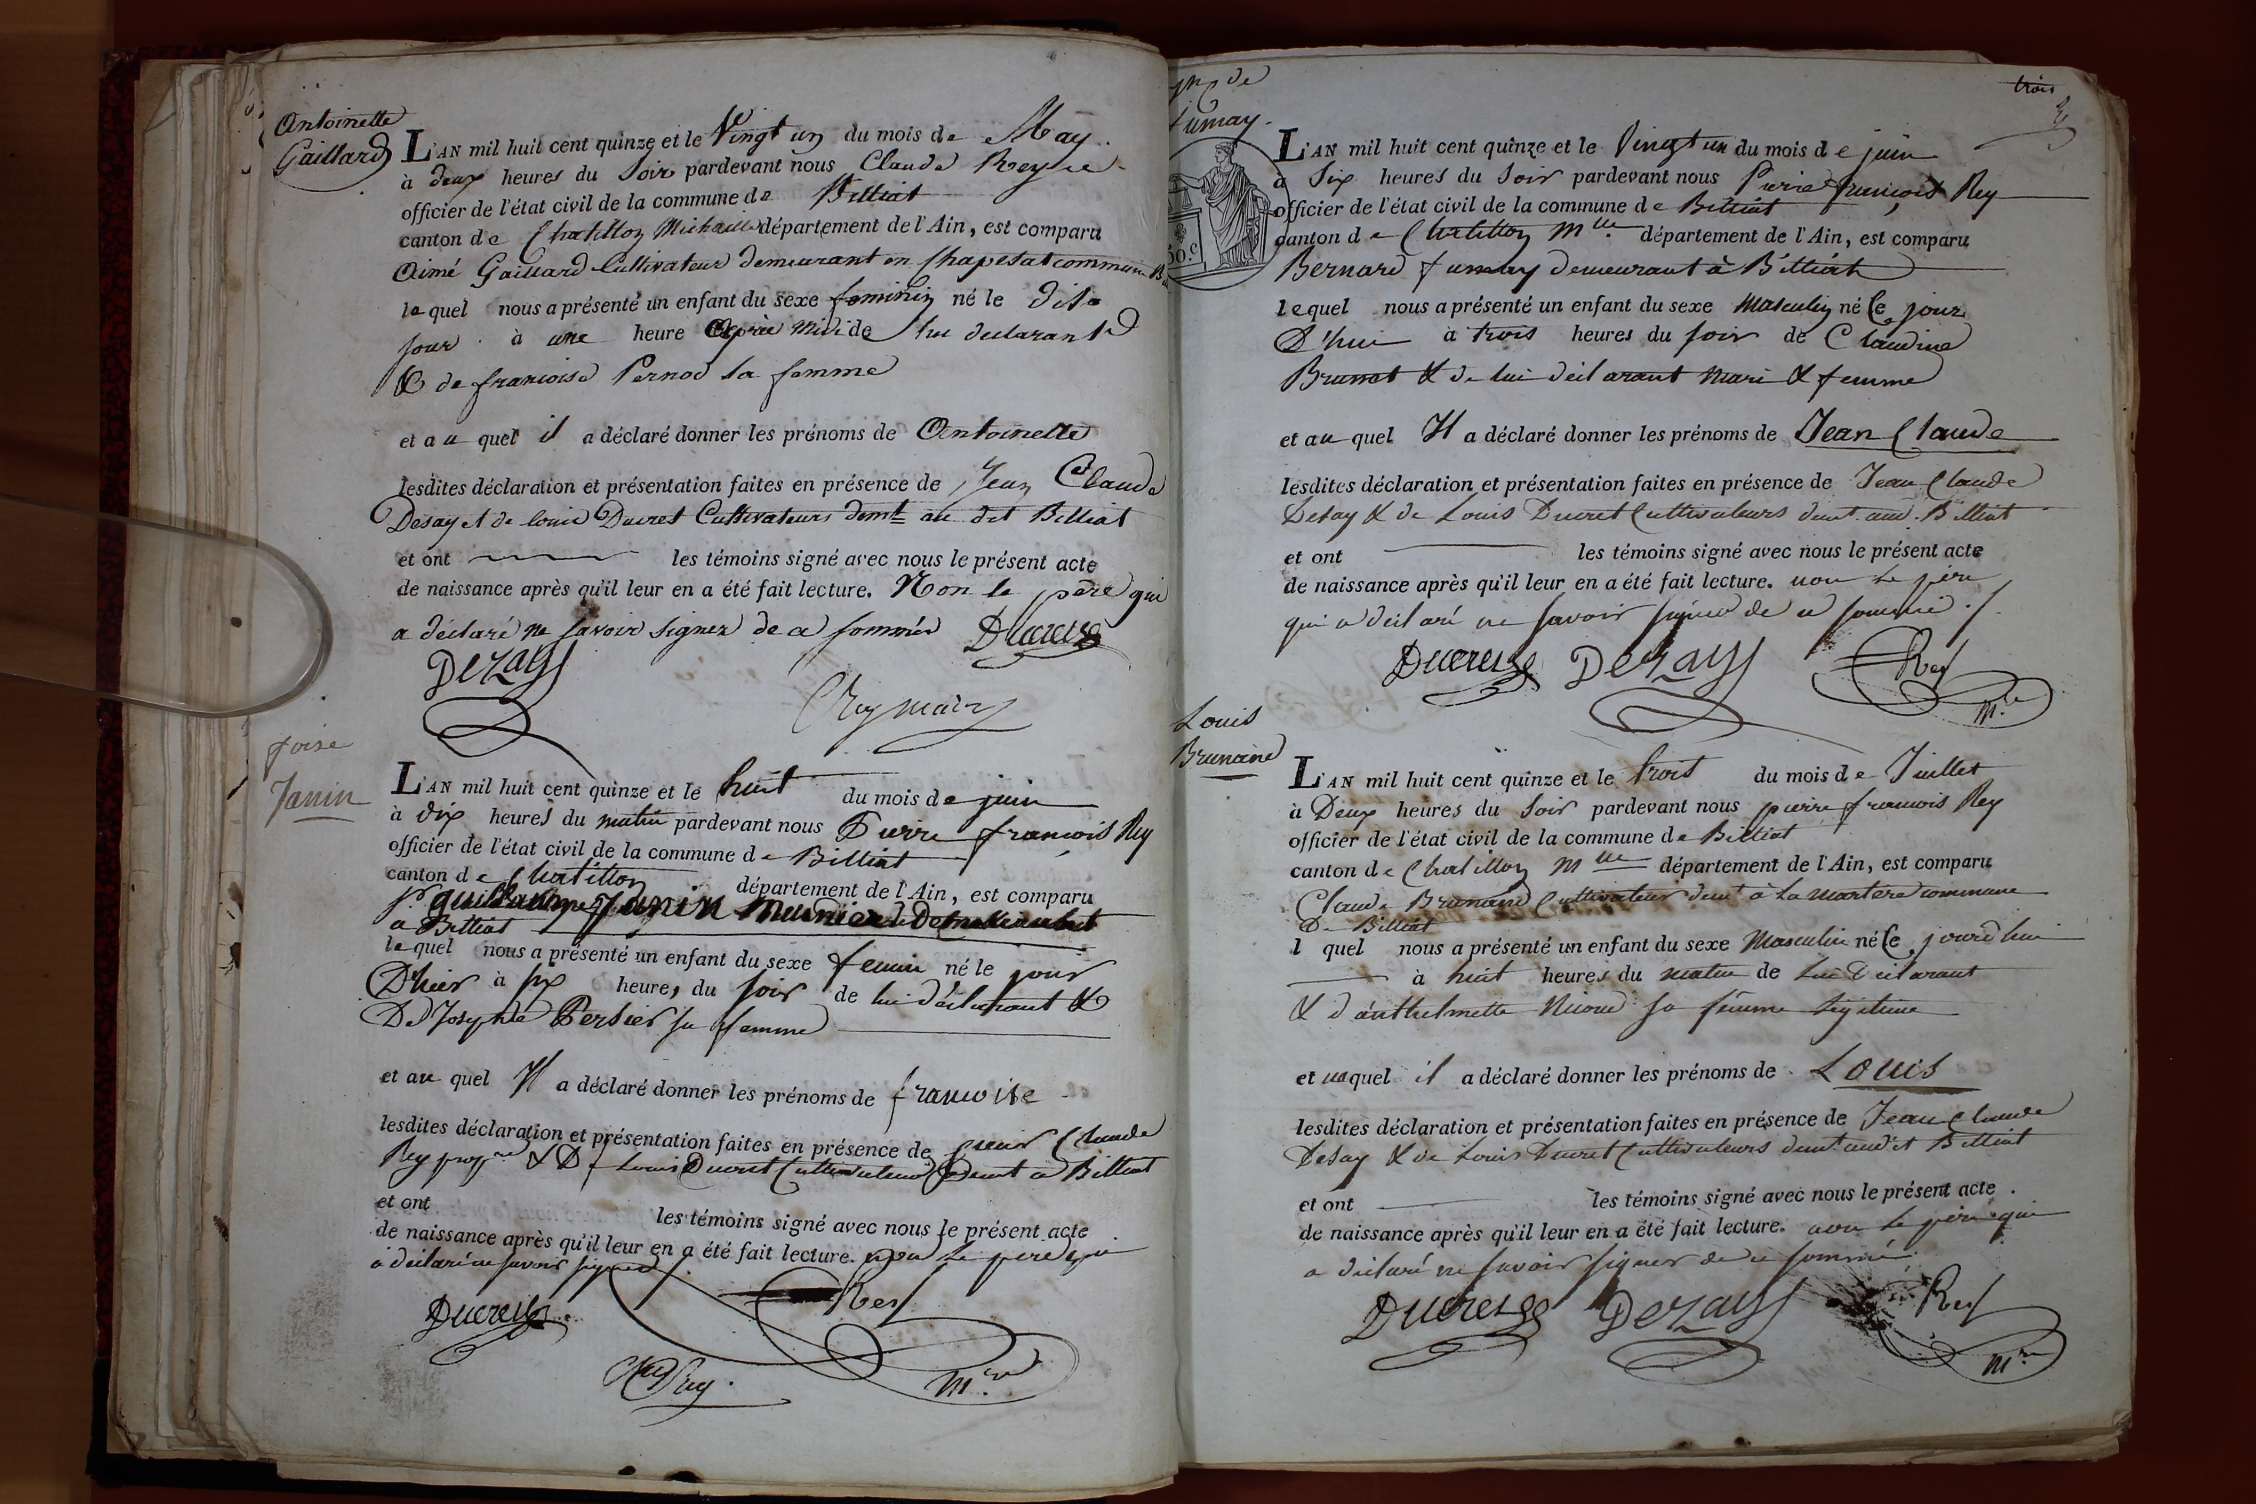 Antoinette
Gaillard
L'AN mil huit cent quinze et le Vingt un du mois de May
à deux heures du soir pardevant nous Claude Rey
officier de l'état civil de la commune de Billiat
canton de Chatillon Michaille département de l'Ain, est comparu
Aimé Gaillard Cultivateur demeurant en Chapesat commune
lequel nous a présenté un enfant du sexe feminin né le dit
jour à une heure Après midi de lui declarant
& de francoise Pernod sa femme
et au quel il a déclaré donner les prénoms de Antoinette
lesdites déclaration et présentation faites en présence de Jean Claude
Desay et de louis Ducret Cultivateurs demt au dit Billiat
et ont les témoins signé avec nous le présent acte
de naissance après qu'il leur en a été fait lecture. Non le père qui
a déclaré ne savoir signer de ce sommé
Ducret
Dezay
Rey maire
foise
Janin
L'AN mil huit cent quinze et le huit du mois de juin
à dix heures du matin pardevant nous Pierre françois Rey
officier de l'état civil de la commune de Billiat
canton de Chatillon département de l'Ain, est comparu
Guillaume Janin Meunier
a Billiat
lequel nous a présenté un enfant du sexe femin né le jour
D'hier à six heures du soir de lui déclarant &
De Josephte Perbier sa femme
et au quel Il a déclaré donner les prénoms de francoise
lesdites déclaration et présentation faites en présence de Claude
Rey propre & De Louis Ducret Cultivateur demt a Billiat
et ont les témoins signé avec nous le présent acte
de naissance après qu'il leur en a été fait lecture. non le pere qui
a déclaré ne savoir signer
Ducret
Rey
Rey
mre
de
fumay.
trois
3
50 c
L'AN mil huit cent quinze et le Vingt un du mois de juin
à Six heures du Soir pardevant nous Pierre françois Rey
officier de l'état civil de la commune de Billiat
canton de Chatillon Mlle département de l'Ain, est comparu
Bernard fumay demeurant à Billiat
lequel nous a présenté un enfant du sexe Masculin né Ce jour
D'hui à trois heures du soir de Claudine
Brunet & de lui déclarant Mari & femme
et au quel Il a déclaré donner les prénoms de Jean Claude
lesdites déclaration et présentation faites en présence de Jean Claude
Desay & de Louis Ducret Cultivateurs demt aud. Billiat
et ont les témoins signé avec nous le présent acte
de naissance après qu'il leur en a été fait lecture. non le père
qui a déclaré ne savoir signer de ce sommé
Ducret Dezay Rey
mre
Louis
Brunand
L'AN mil huit cent quinze et le trois du mois de Juillet
à Deux heures du Soir pardevant nous pierre francois Rey
officier de l'état civil de la commune de Billiat
canton de Chatillon Mlle département de l'Ain, est comparu
Claude Brunand Cultivateur demt à la Martere commune
De Billiat
l quel nous a présenté un enfant du sexe Masculin né Ce jourd'hui
à huit heures du matin de lui Déclarant
& d'anthelmette Nicoud sa femme légitime
et auquel il a déclaré donner les prénoms de Louis
lesdites déclaration et présentation faites en présence de Jean Claude
Desay & de Louis Ducret Cultivateurs demt audit Billiat
et ont les témoins signé avec nous le présent acte
de naissance après qu'il leur en a été fait lecture. non le père qui
a déclaré ne savoir signer de ce sommé
Ducret Dezay Rey
mre